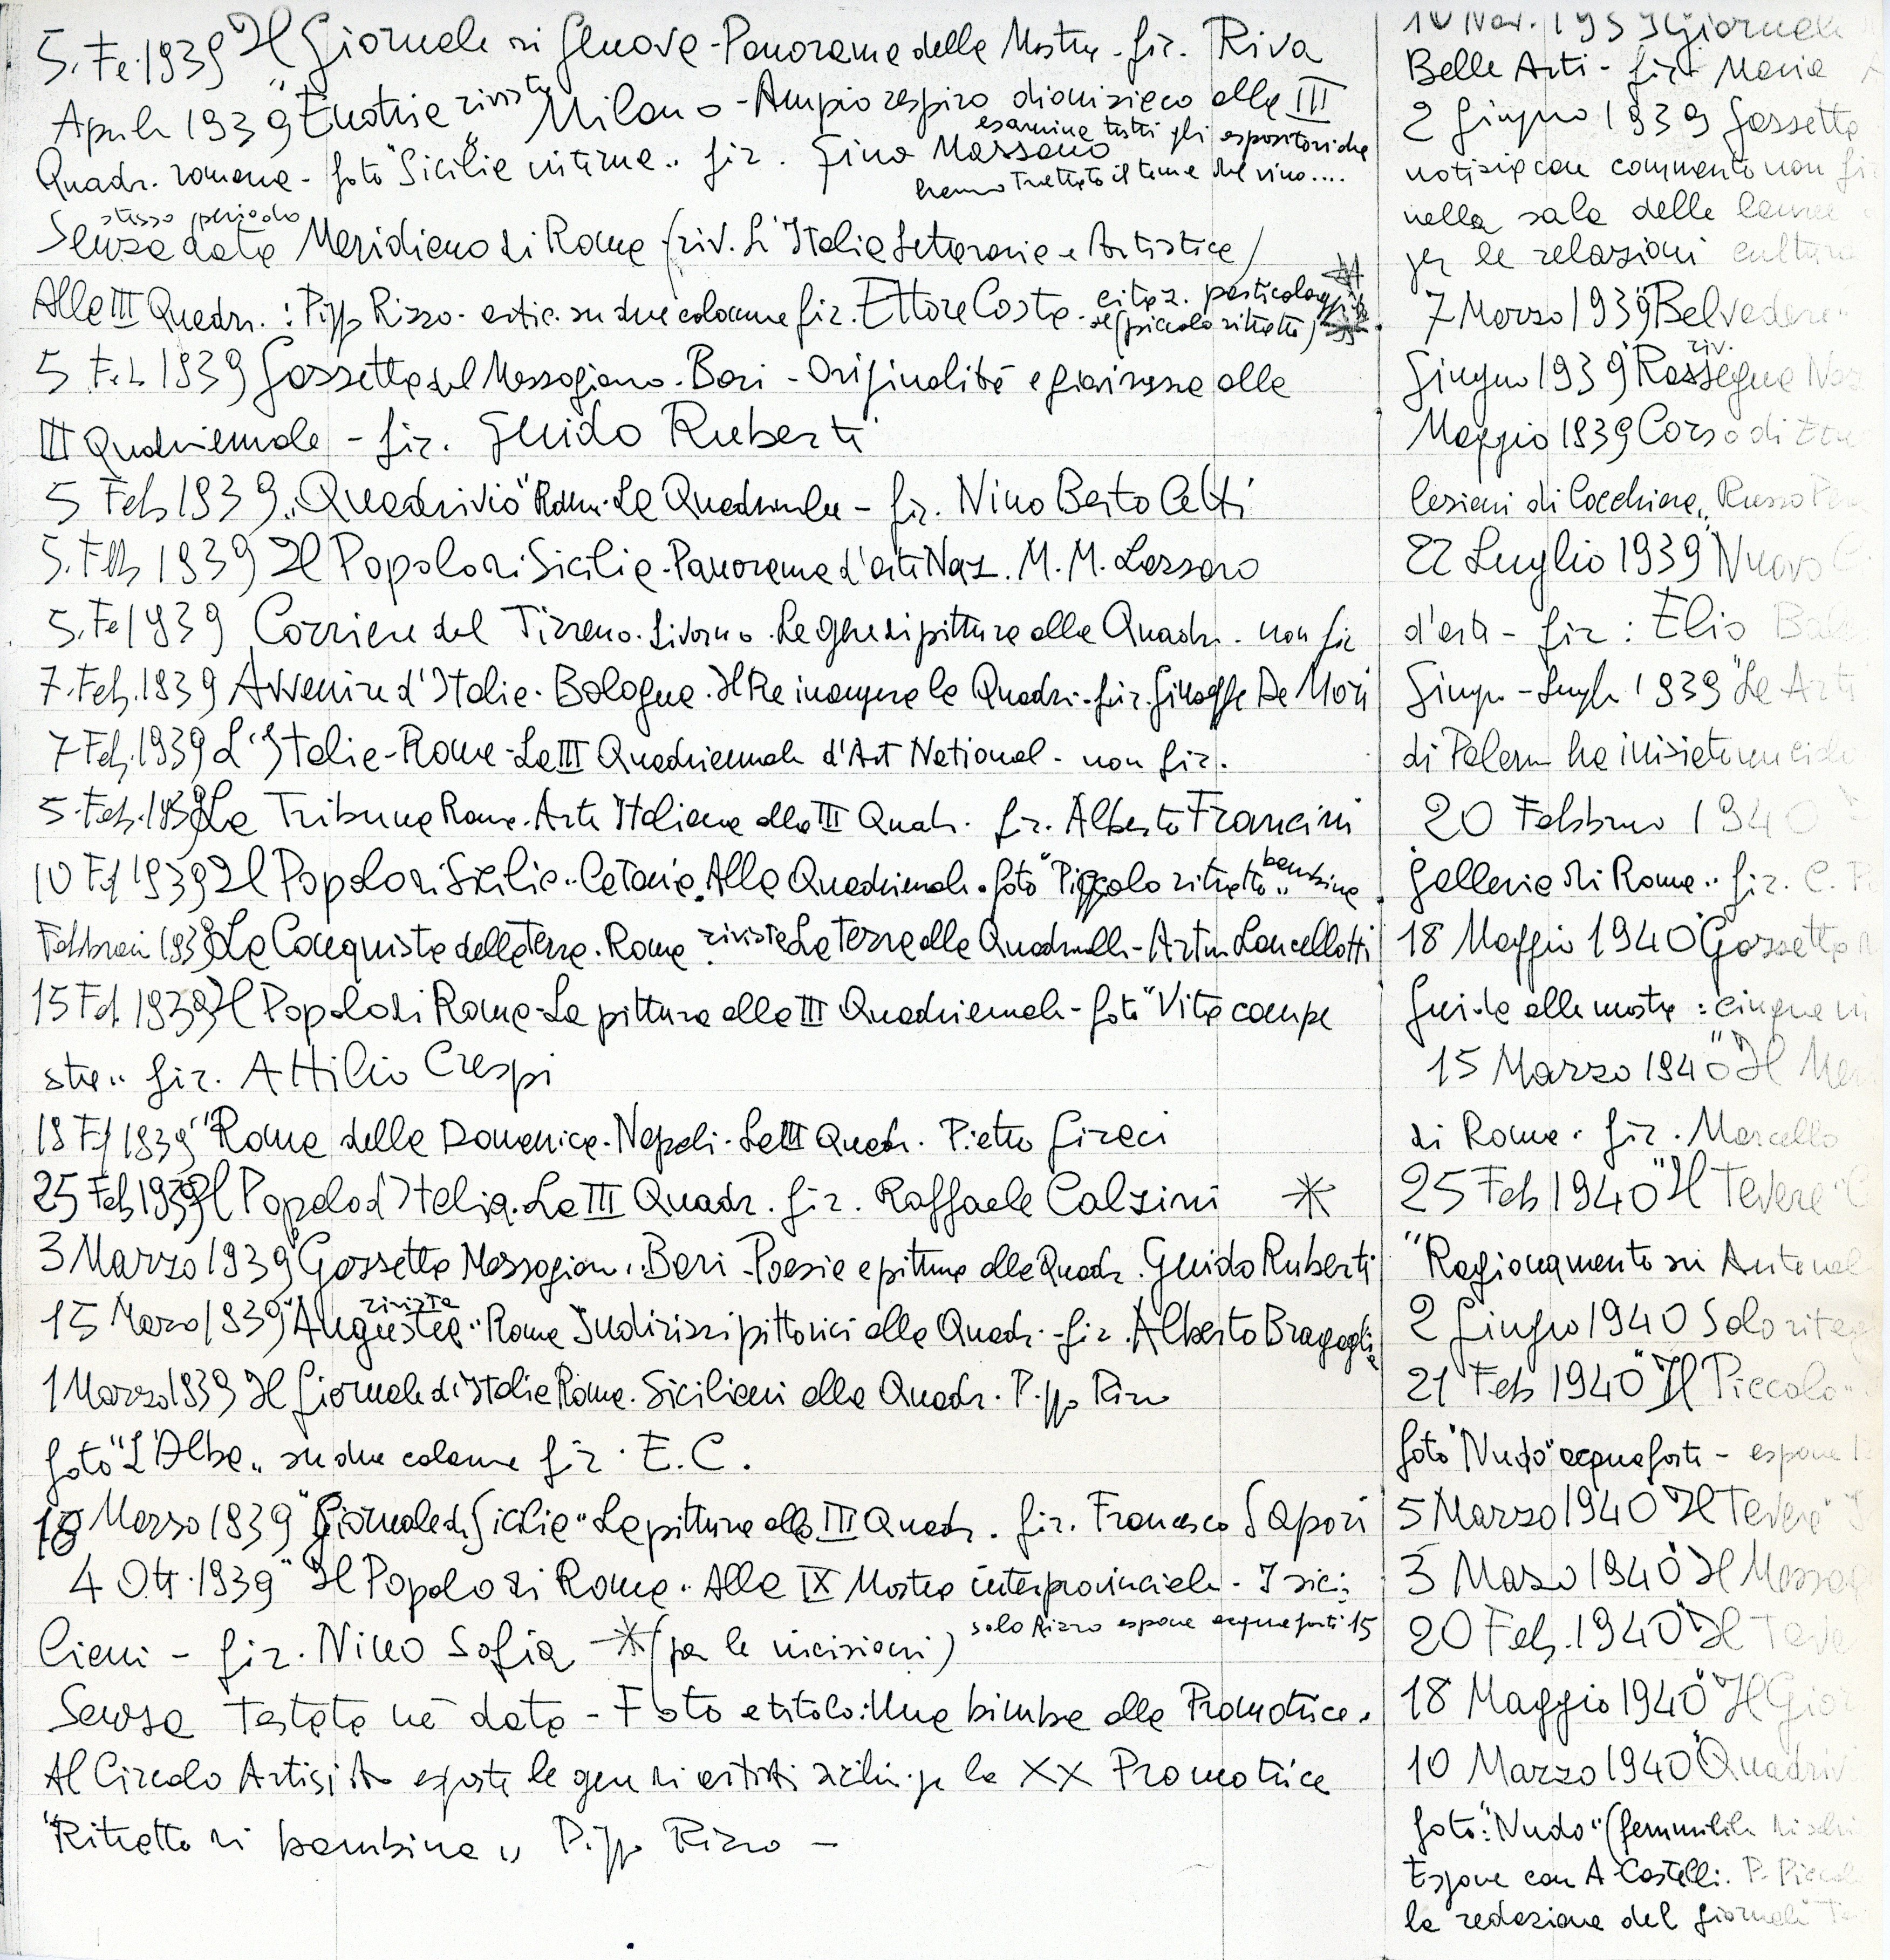 5. Fe. 1939 Il Giornale di Genova - Panorama delle Mostre - fir. Riva
Aprile 1939 "Enotria rivista Milano - Ampio respiro dionisiaco alla III
Quadr. romana - foto "Sicilia intima" fir. Gino Massano esamina tutti gli espositori che
hanno trattato il tema del vino....
Senza data stesso periodo Meridiano di Roma (riv. L'Italia Letteraria e Artistica)
Alla III Quadr. : Pippo Rizzo - artic. su due colonne fir. Ettore Costa - citaz. particolare (piccolo ritratto)
5 Feb 1939 Gazzetta del Mezzogiorno - Bari - Originalità e giovinezza alla
III Quadriennale - fir. Guido Ruberti
5 Feb 1939 "Quadrivio" Roma - La Quadriennale - fir. Nino Berto
5. Feb 1939 Il Popolo di Sicilia - Panorama d'arte Naz. M. M. Lazzaro
5. Fe 1939 Corriere del Tirreno. Livorno. La gara di pittura alla Quadr. non fir
7. Feb. 1939 Avvenire d'Italia - Bologna. Il Re inaugura la Quadri. fir. Giuseppe De Mori
7 Feb. 1939 L'Italie - Rome - La III Quadriennale d'Art National - non fir.
5. Feb. 1939 La Tribuna Roma. Arte Italiana alla III Quadr. fir. Alberto Francini
10 Feb 1939 Il Popolo di Sicilia - Catania. Alla Quadriennale. foto "Piccolo ritratto" bambina
Febbraio 1939 La Conquista della Terra. Roma rivista La Terra alla Quadriennale - Artur Lancellotti
15 Feb 1939 Il Popolo di Roma - La pittura alla III Quadriennale - foto "Vita campe
stre" fir. Attilio Crespi
18 Feb 1939 "Roma della Domenica - Napoli - La III Quadr. Pietro Giraci
25 Feb 1939 Il Popolo d'Italia. La III Quadr. fir. Raffaele Calzini
3 Marzo 1939 "Gazzetta Mezzogiorn. Bari - Poesia e pittura alla Quadr. Guido Ruberti
15 Marzo 1939 "Augustea" rivista Roma Indirizzi pittorici alla Quadr. - fir. Alberto Bragaglia
1 Marzo 1939 Il Giornale d'Italia Roma. Siciliani alla Quadr. Pippo Rizzo
foto "L'Alba" su due colonne fir. E. C.
18 Marzo 1939 "Giornale di Sicilia" La pittura alla III Quadr. fir. Francesco Sapori
4 Ott. 1939 "Il Popolo di Roma. Alla IX Mostra interprovinciale - I sici:
liani - fir. Nino Sofia (per le incisioni) solo Rizzo espone acqueforti 15
Senza testata nè data - Foto e titolo: Una bimba alla Promotrice.
Al Circolo Artistico le gare di artisti sicili. per la XX Promotrice
"Ritratto di bambina" Pippo Rizzo -
10 Nov. 1939 Giornale
Belle Arti - fir. Maria
2 Giugno 1939 Gazzetta
notizia con commento non fi
nella sala delle lauree
per le relazioni cultura
7 Marzo 1939 "Belvedere"
Giugno 1939 "Rassegna riv.
Maggio 1939 Corso di
lezioni di Cocchiara, Russo
22 Luglio 1939 "Nuovo
d'arte - fir : Elio
Giugn - Lugl. 1939 "Le Arti
di Palerm ha iniziato un ciclo
20 Febbraio 1940
Galleria di Roma" fir. C.
18 Maggio 1940 "Gazzetta
Guida alle mostre : cinque
15 Marzo 1940 "Il
di Roma. fir. Marcello
25 Feb 1940 "Il Tevere"
"Ragionamento su Antonel
2 Giugno 1940 Solo
21 Feb 1940 "Il Piccolo"
foto "Nudo" acquaforte - espone
5 Marzo 1940 Il Tevere"
3 Marzo 1940 "Il Messag
20 Feb. 1940 "Il Teve
18 Maggio 1940 "Il Gior
10 Marzo 1940 "Quadriv
foto: "Nudo" (femminile di
Espone con A. Castelli. P.
la redazione del giornale